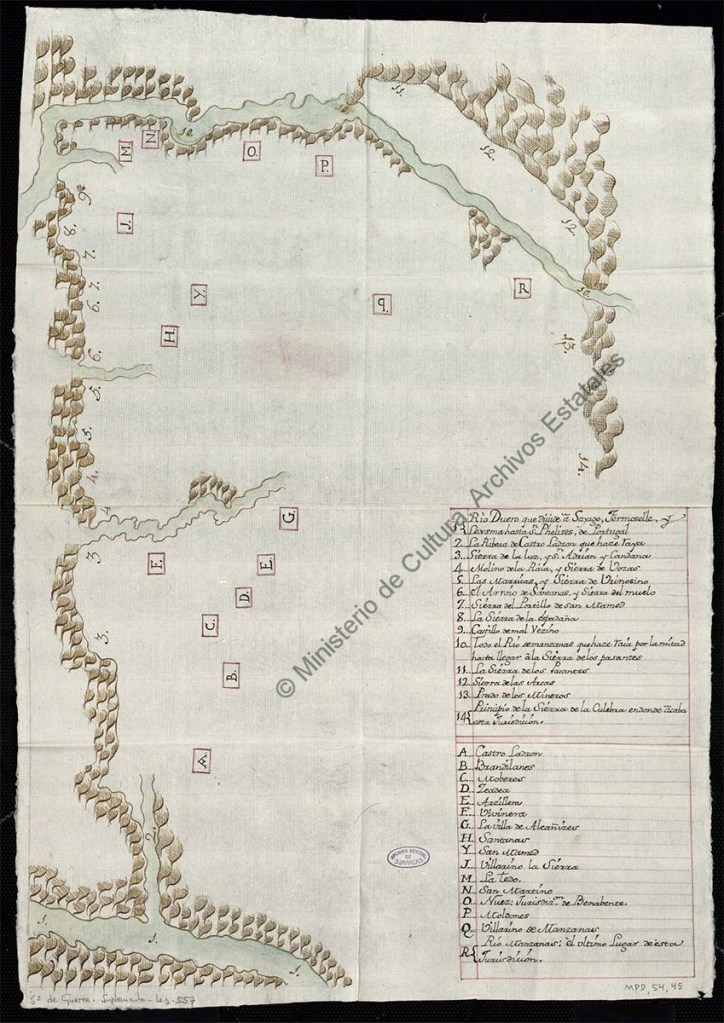 11.
12.
12.
10.
10.
10.
M
N
O.
P.
9.
8.
J.
7.
7.
6.
6.
Y.
q.
R
H.
13.
5.
5.
14.
4.
4.
G.
3.
F.
E.
D.
C.
3.
B.
A.
2.
1.
1.
1.
1.
1{ Rio Duero que divide á Sayago, Fermoselle, y
Ledesma hasta Sn. Phelizes, de Portugal
2. La Ribera de Castro Ladron que haze Raya
3. Siérra de la luz, y Sn. Adrián y Candana
4. Molino de la Ráia, y Siérra de Vozas
5. Las Marrúcas, y Siérra de Vrinoçino
6. el Arroio de Santanas, y Sierra del muelo
7. Siérra del Portillo de san Mamed
8. La Siérra de la Espadaña
9. Castillo de mal Vezino
10. Todo el Río de manzanas que haze Raia por la mitad
hasta llegar á la Siérra de los pasantes
11. La Siérra de los
12. Siérra de las Arcas
13. Prado de los Mineros
14{ Principio de la Siérra de la Culebra en donde acaba
esta Jurisdición.
A. Castro Ladron
B. Brandilanes
C. Moberos
D. Zeadea
E. Arcillera
F. Vivinera
G. La villa de Alcañizes
H. Santanas
Y. San Mamed
J. Villarino la Siérra
M. La Tedo.
N. San Martino
O. Nuez: Jurisdicn. de Benabente.
P. Moldones
Q. Villarino de Manzanas
R{ Rio Manzanas: el vltimo Lugar de esta
Jurisdición.
© Ministerio de Cultura, Archivos Estatales
ARCHIVO GENERAL
DE
SIMANCAS
Sª de Guerra. Suplemento - Leg. 557
MPD, 54, 45